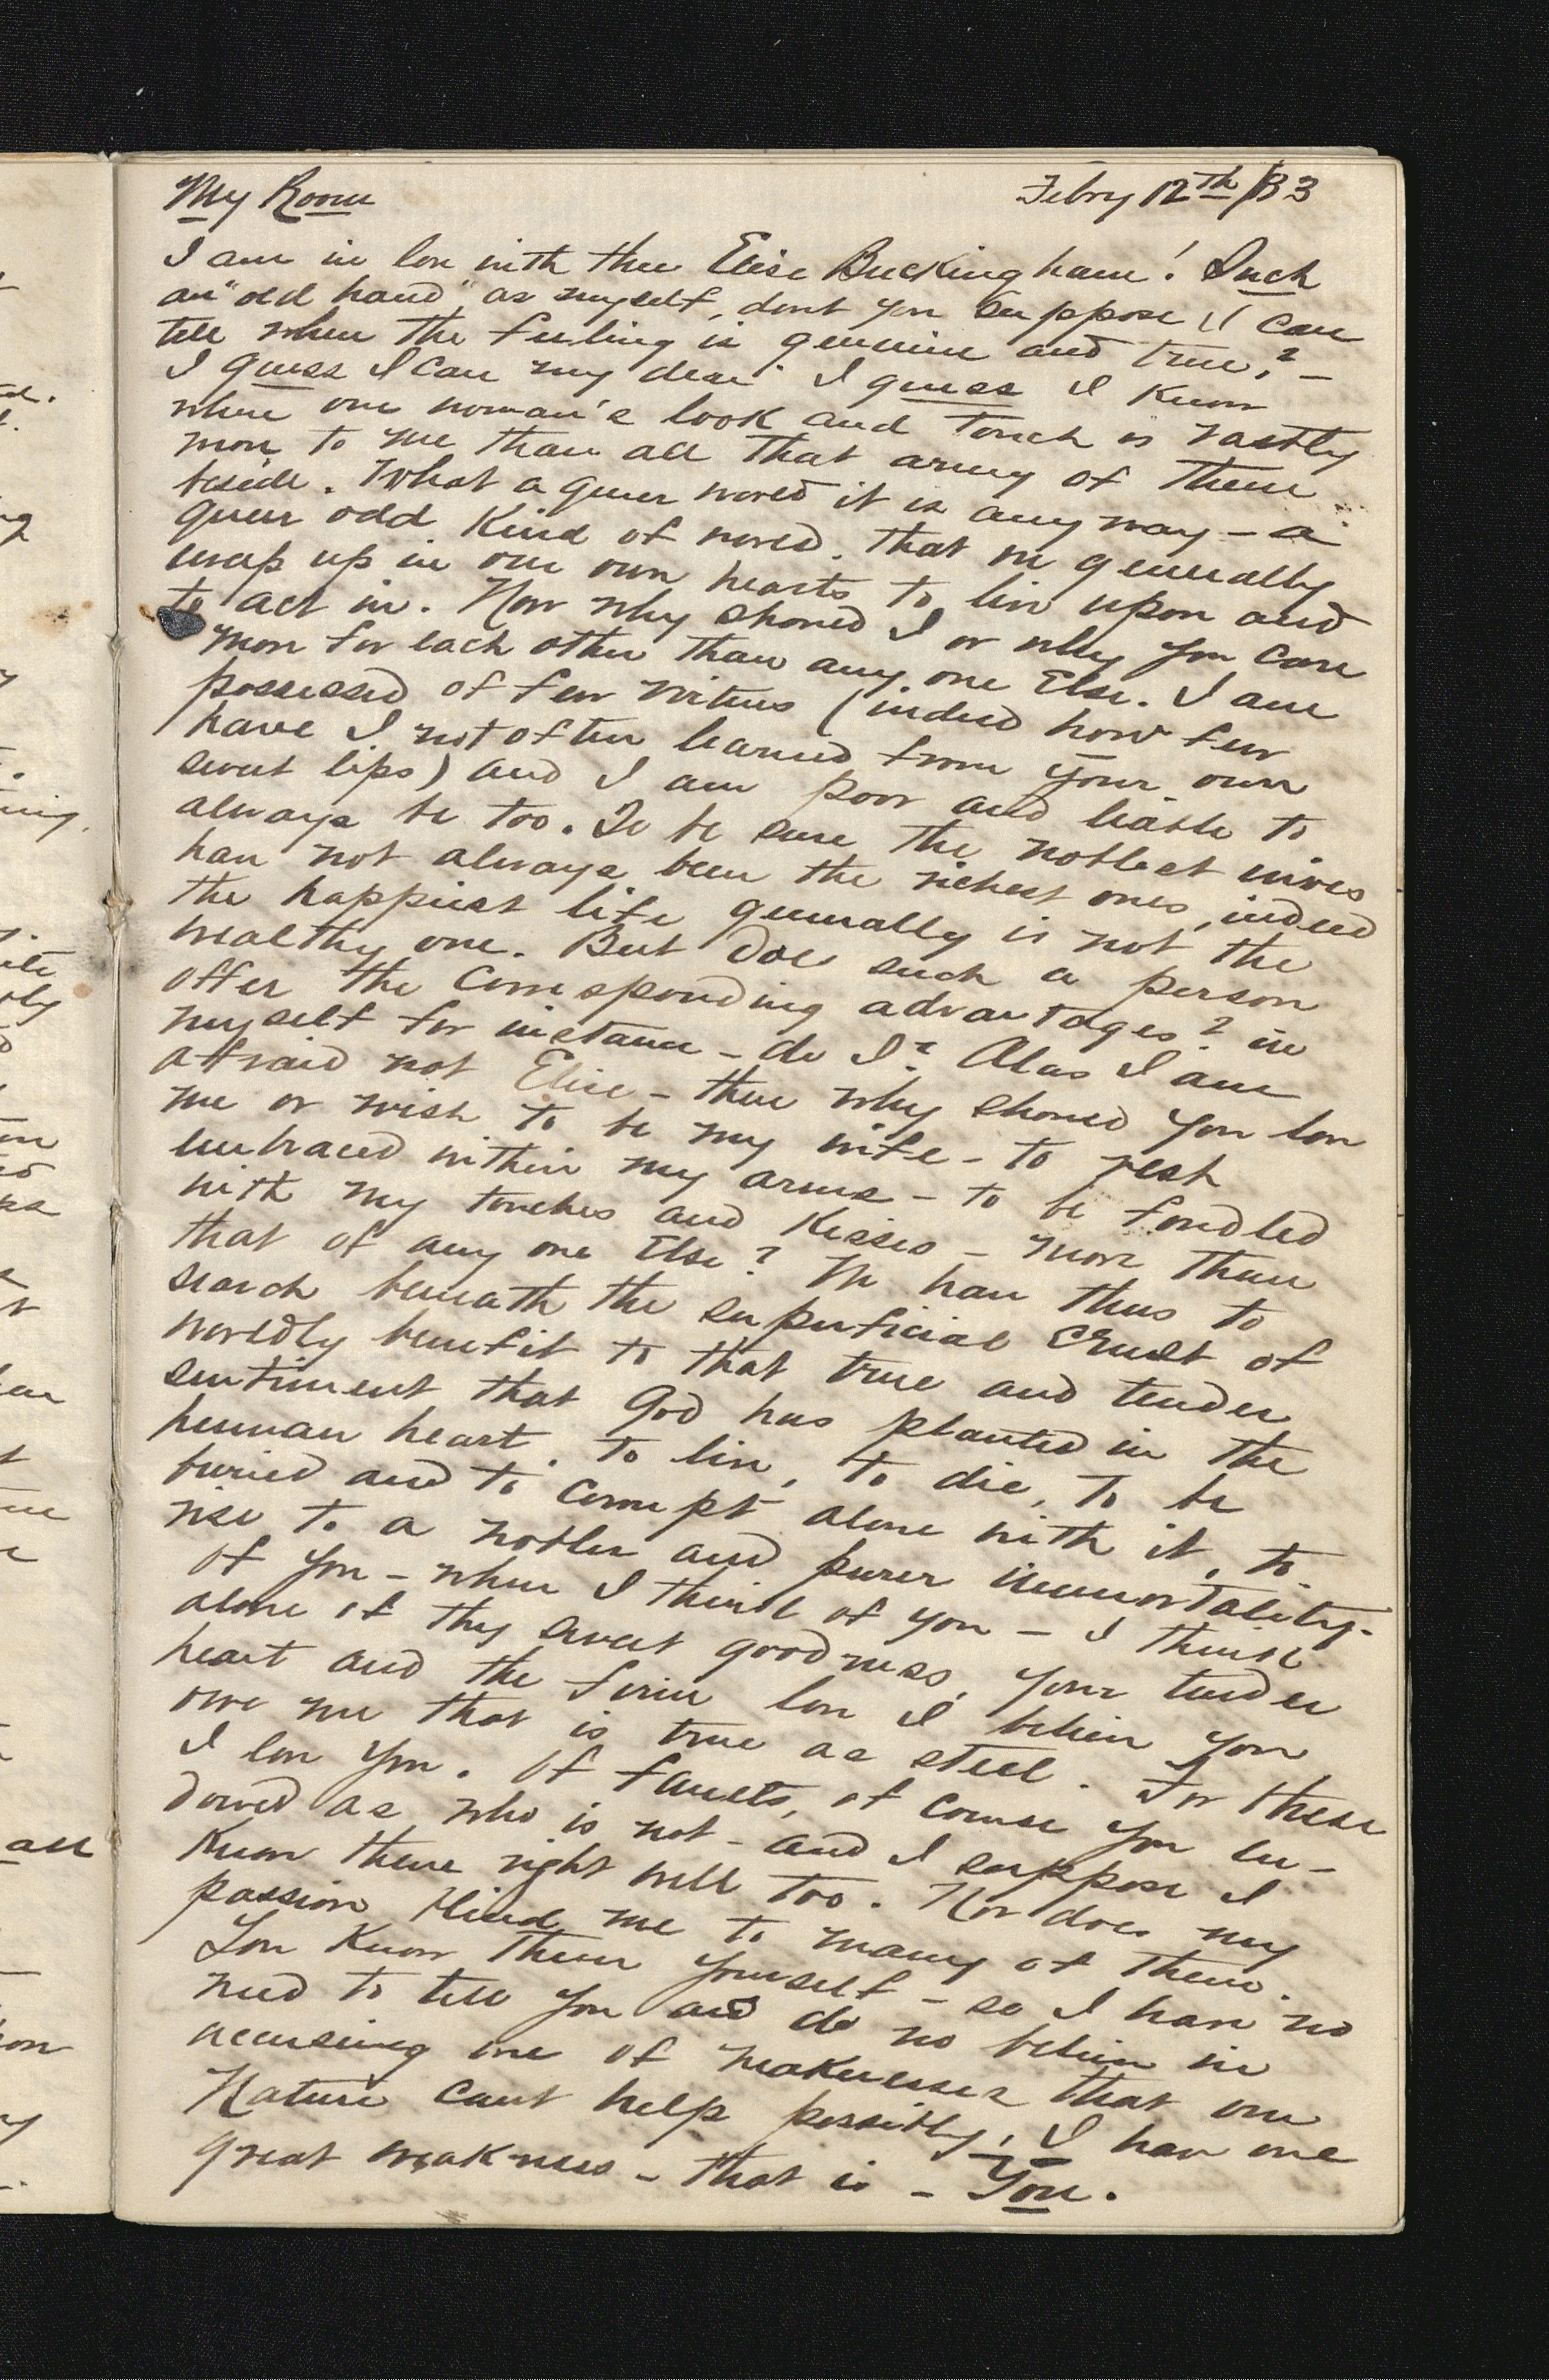 My Room Febry 12th /83
I am in love with thee Elise Buckingham! Such
an "old hand" as myself, dont you suppose I can
tell when the feeling is genuine and true? –
I guess I can my dear I guess I know
when one woman's look and touch is vastly
more to me than all that army of them
beside. What a queer world it is any way – a
queer odd kind of world. That we generally
wrap up in our own hearts to live upon and
to act in. Now why should I or why you care
more for each other than any one Else. I am
possessed of few virtues (indeed how few
have I not often learned from your own
sweet lips) and I am poor and liable to
always be too. To be sure the noblest wives
have not always been the richest ones, indeed
the happiest life generally is not the
wealthy one. But does such a person
offer the corresponding advantages? in
myself for instance – do I? Alas I am
afraid not Elise – then why should you love
me or wish to be my wife – to rest
embraced within my arms – to be fondled
with my touches and kisses – more than
that of any one Else? We have thus to
search beneath the superficial crust of
worldly benefit to that true and tender
sentiment that God has planted in the
human heart. To live, to die, to be
buried and to corrupt alone with it, to
rise to a nobler and purer immortality.
Of you – when I think of you – I think
alone of thy sweet goodness, your tender
heart and the firm love I believe you
owe me that is true as steel. For these
I love you. Of faults, of course you en-
dowed as who is not – and I suppose I
know them right well too. Nor does my
passion blind me to many of them.
You know them yourself – so I have no
need to tell you and do no believe in
accusing one of weaknesses that one
Nature cant help possibly, I have one
great weakness – that is – You.